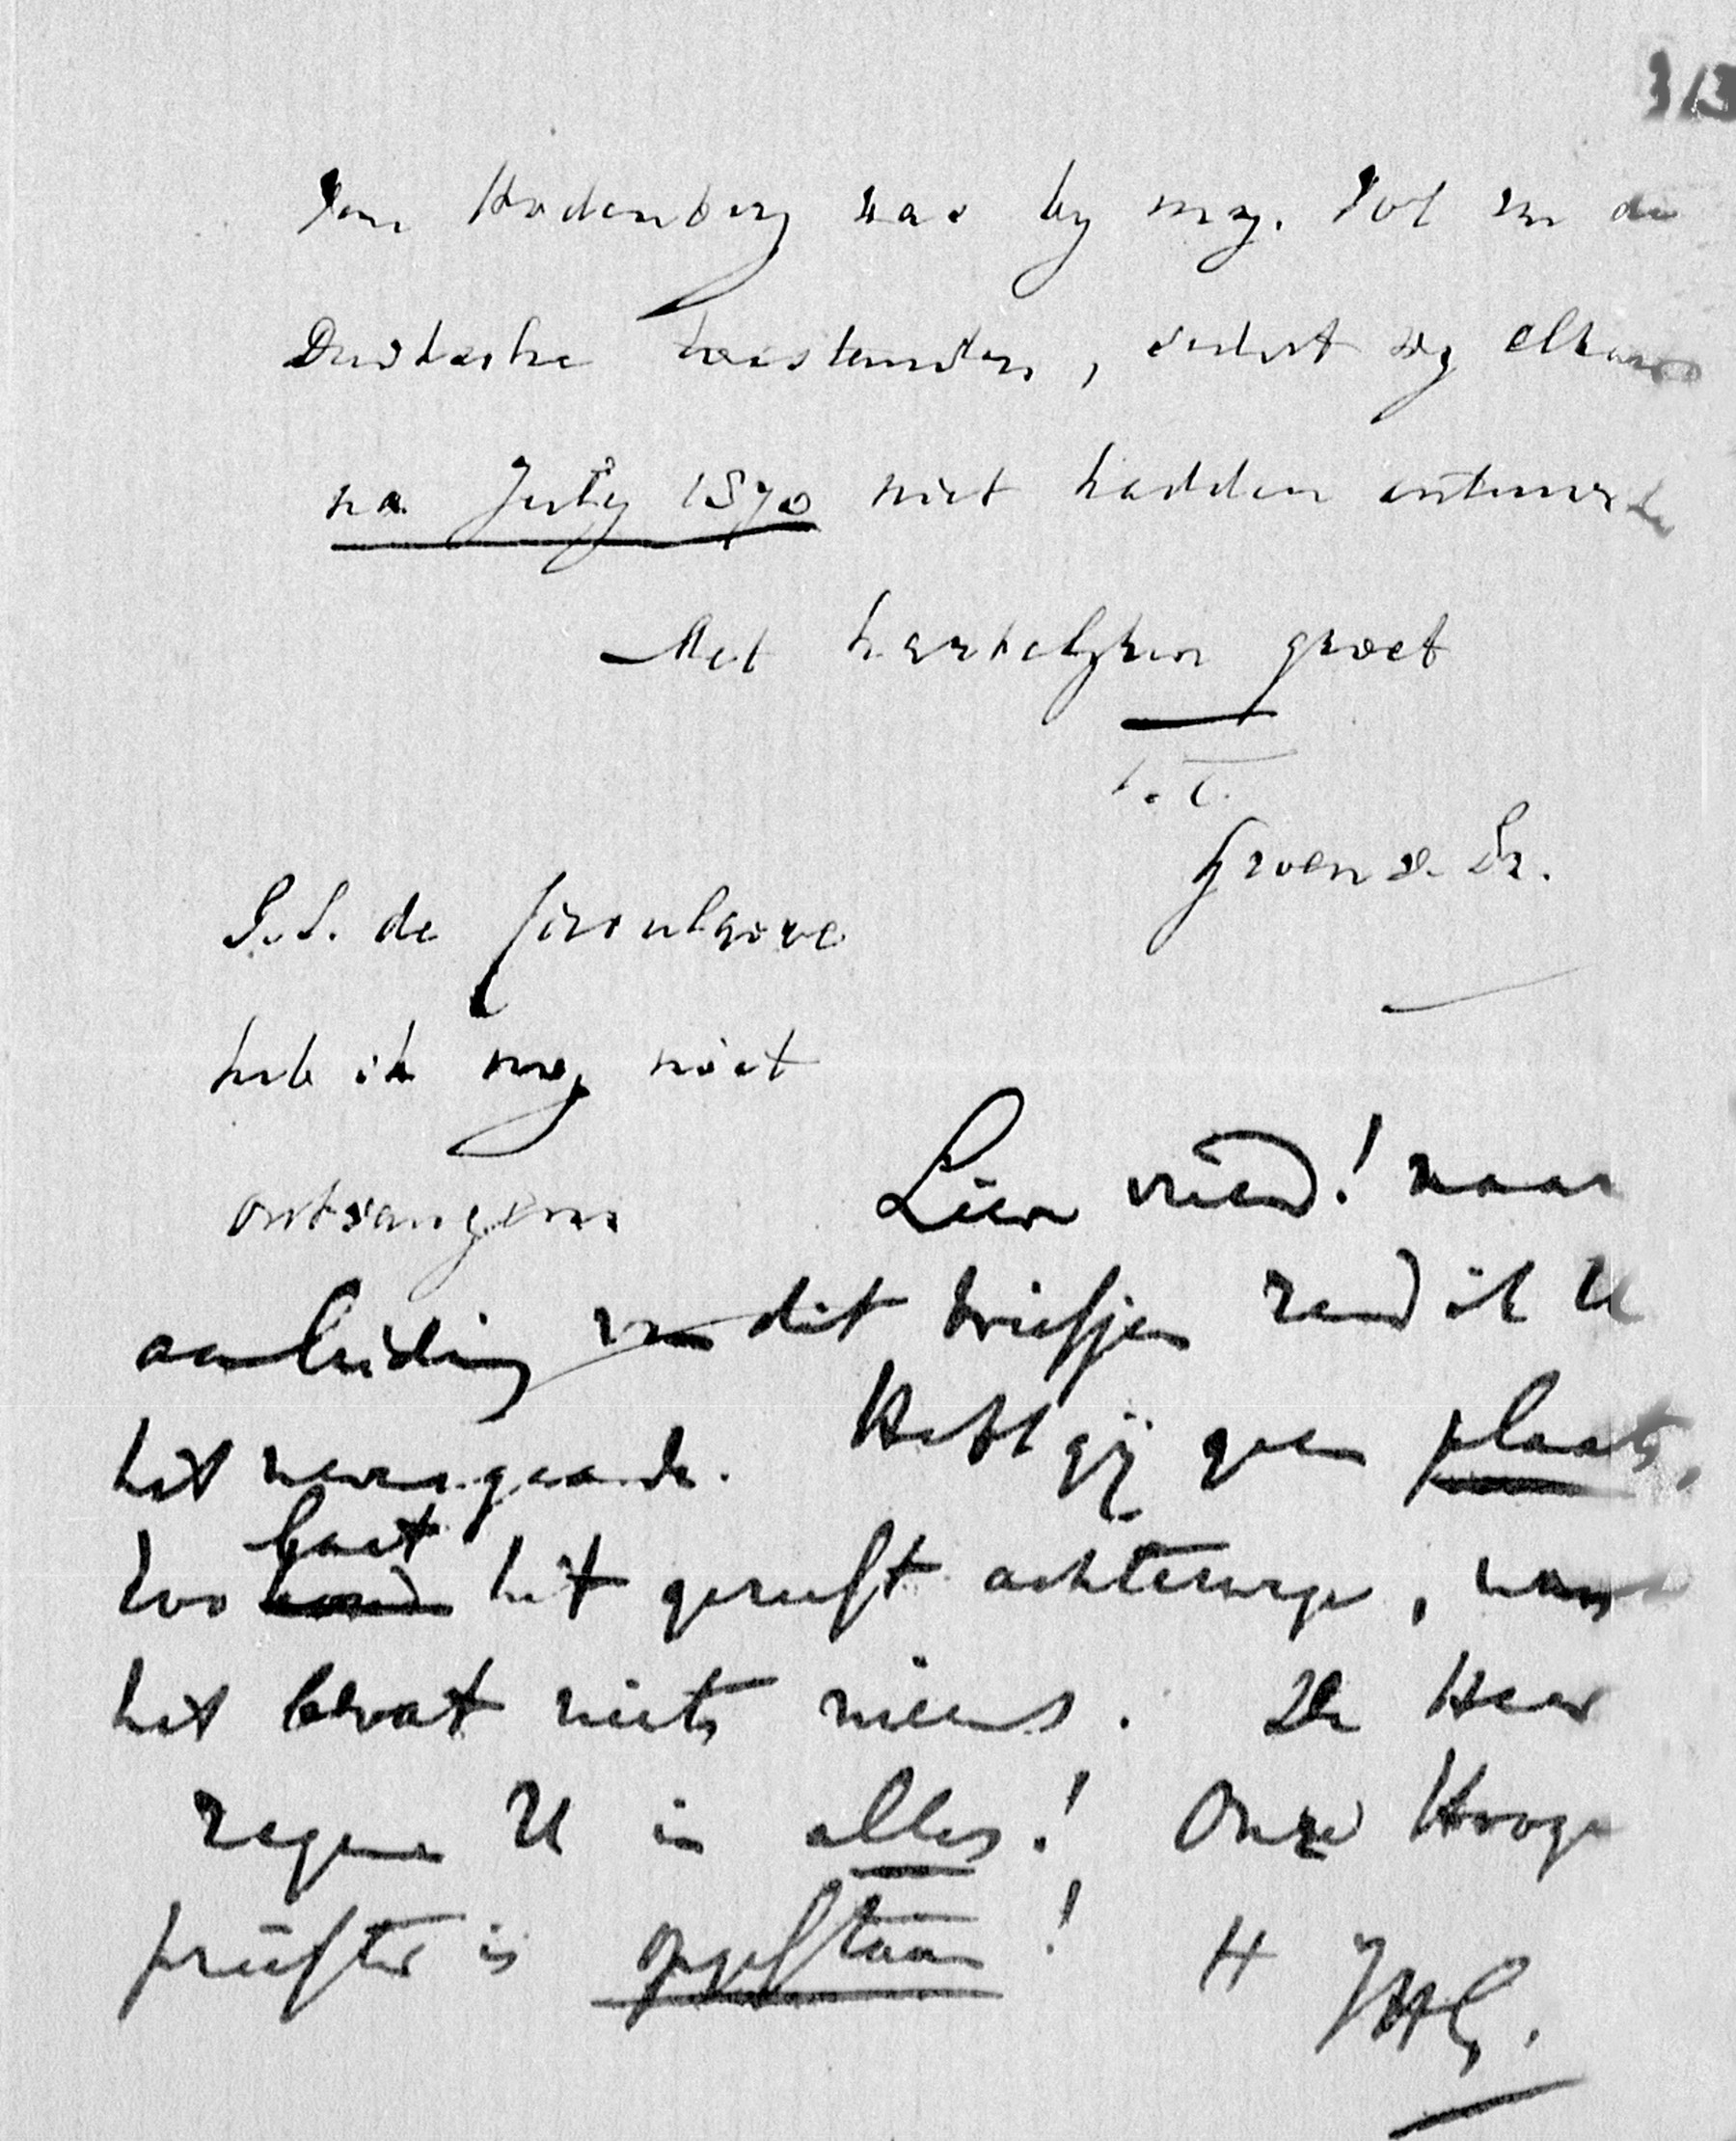 313
Von Hodenberg was by my. Tot in de
Duitsche toestanden, sedert wy elkaar
na July 1870 niet hadden ontmoet
Met hartelyken groet
t.t.
Groen v. Pr.
P.S. de Circulaire
heb ik nog niet
ontvangen
Lieve vriend! naar
aanleiding van dit briefjen zend ik U
het nevensgaande. Hebt gij geen plaats,
zoo laat het gerust achterwege, want
het bevat niets nieuws. De Heer
zegene U in alles! Onze Hooge
priester is opgestaan! H